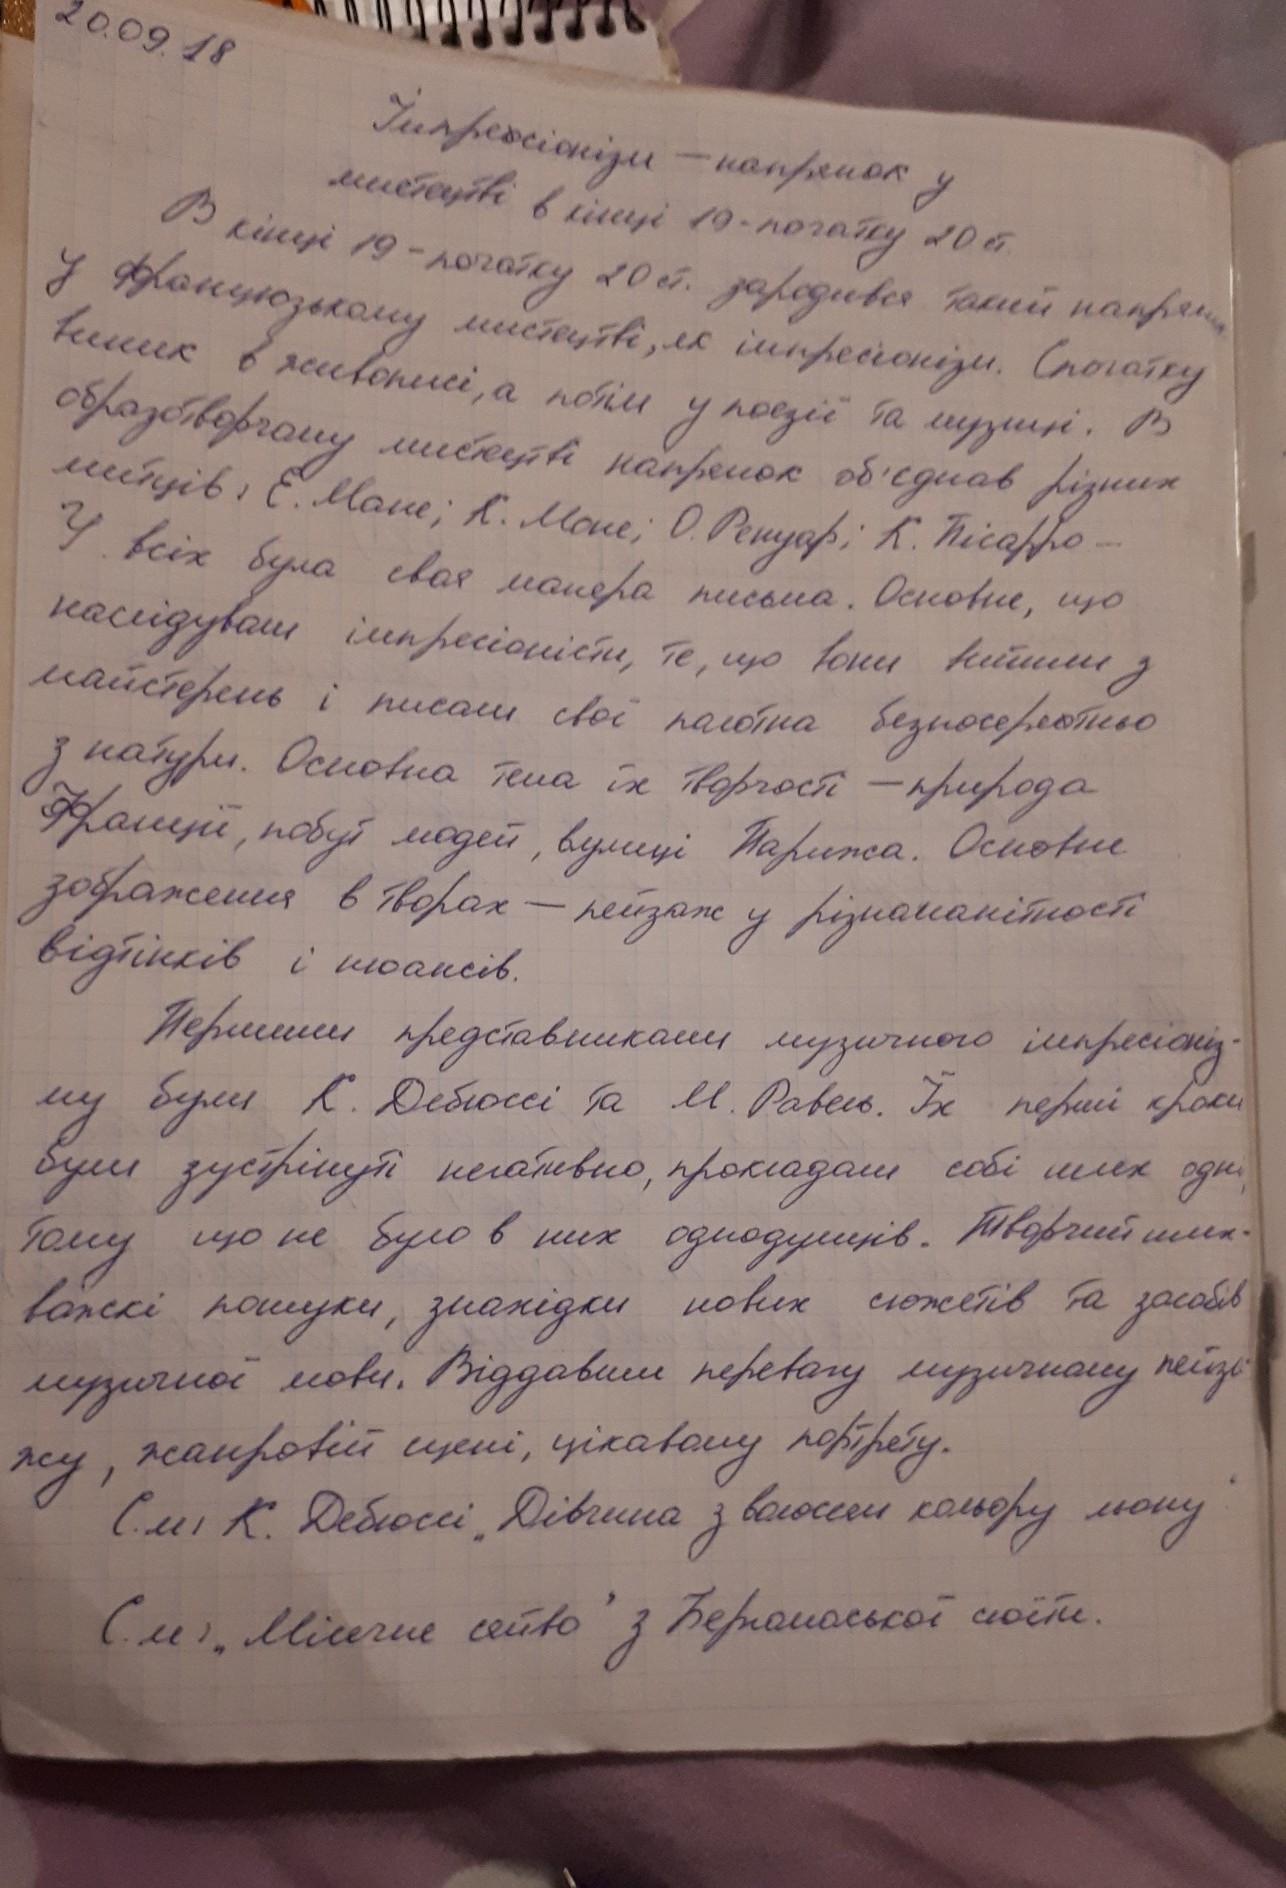 20.09.18
Імпресіонізм – напрямок у
мистецтві в кінці 19-початку 20 ст.
В кінці 19-початку 20 ст. зародився такий напрямок
у французькому мистецтві, як імпресіонізм. Спочатку
виник в живописі, а потім у поезії та музиці. В
образотворчому мистецтві напрямок об'єднав різних
митців: Е. Мане; К. Моне; О. Ренуар; К. Пісарро –
У всіх була своя манера письма. Основне, що
наслідували імпресіоністи, те, що вони вийшли з
майстерень і писали свої полотна безпосередньо
з натури. Основна тема їх творчості – природа
Франції, побут людей, вулиці Парижа. Основне
зображення в творах – пейзаж у різноманітності
відтінків і нюансів.
Першими представниками музичного імпресіоніз-
му були К. Дебюссі та М. Равель. Їх перші кроки
були зустрінуті негативно, прокладали собі шлях одні,
тому що не було в них однодумців. Творчий шлях-
важкі пошуки, знахідки нових сюжетів та засобів
музичної мови. Віддавали перевагу музичному пейза
жу, жанровій сцені, цікавому портрету.
С.м: К. Дебюссі „Дівчина з волоссям кольору льону"
С.м: „Місячне сяйво" з Бергамаської сюїти.